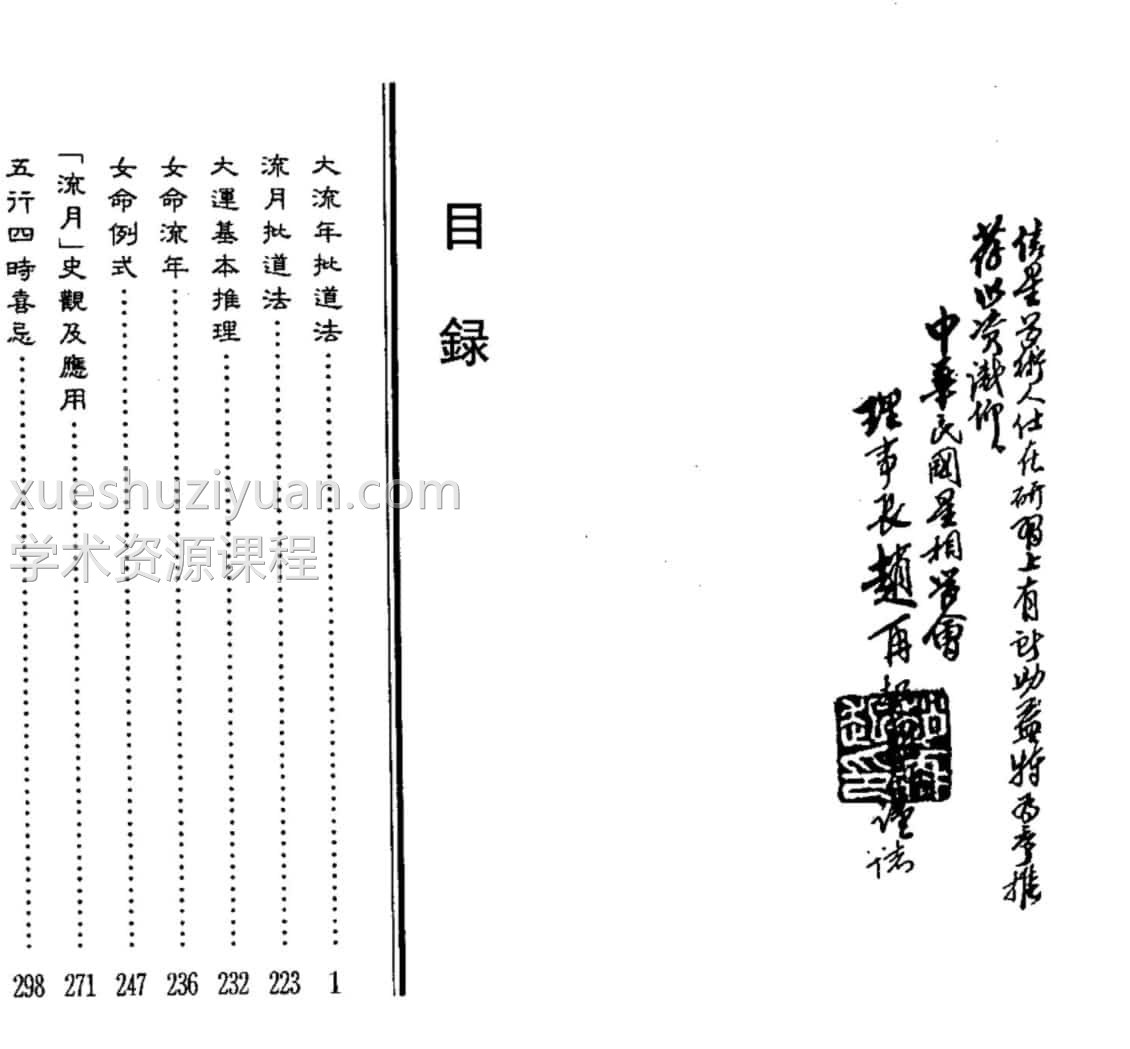 使星学術人仕在研習上有所助益特為季推
荐以资識仰、
中華民國星相学會
理事長趙再
謹誌
目録
大流年批道法……1
流月批道法……223
大運基本推理……232
女命流年……236
女命例式……247
「流月」史觀及應用……271
五行四時喜忌……298
xueshuziyuan.com
学术资源课程